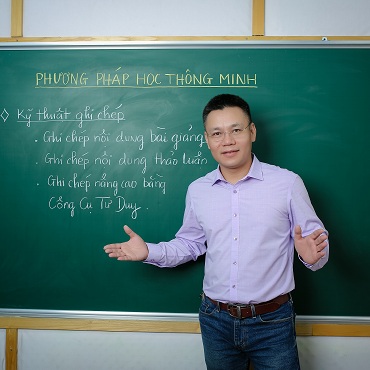 PHƯƠNG PHÁP HỌC THÔNG MINH
Kỹ thuật ghi chép
. Ghi chép nội dung bài giảng
. Ghi chép nội dung thảo luận
. Ghi chép nâng cao bằng
Công Cụ Tư Duy.